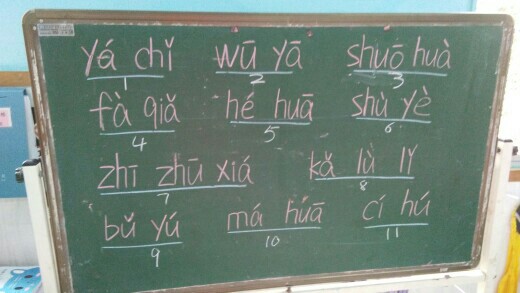 yá chǐ wū yā shuō huà
1 2 3
fà qiǎ hé huā shù yè
4 5 6
zhī zhū xiá kǎ lù lǐ
7 8
bǔ yú má huā cí hú
9 10 11